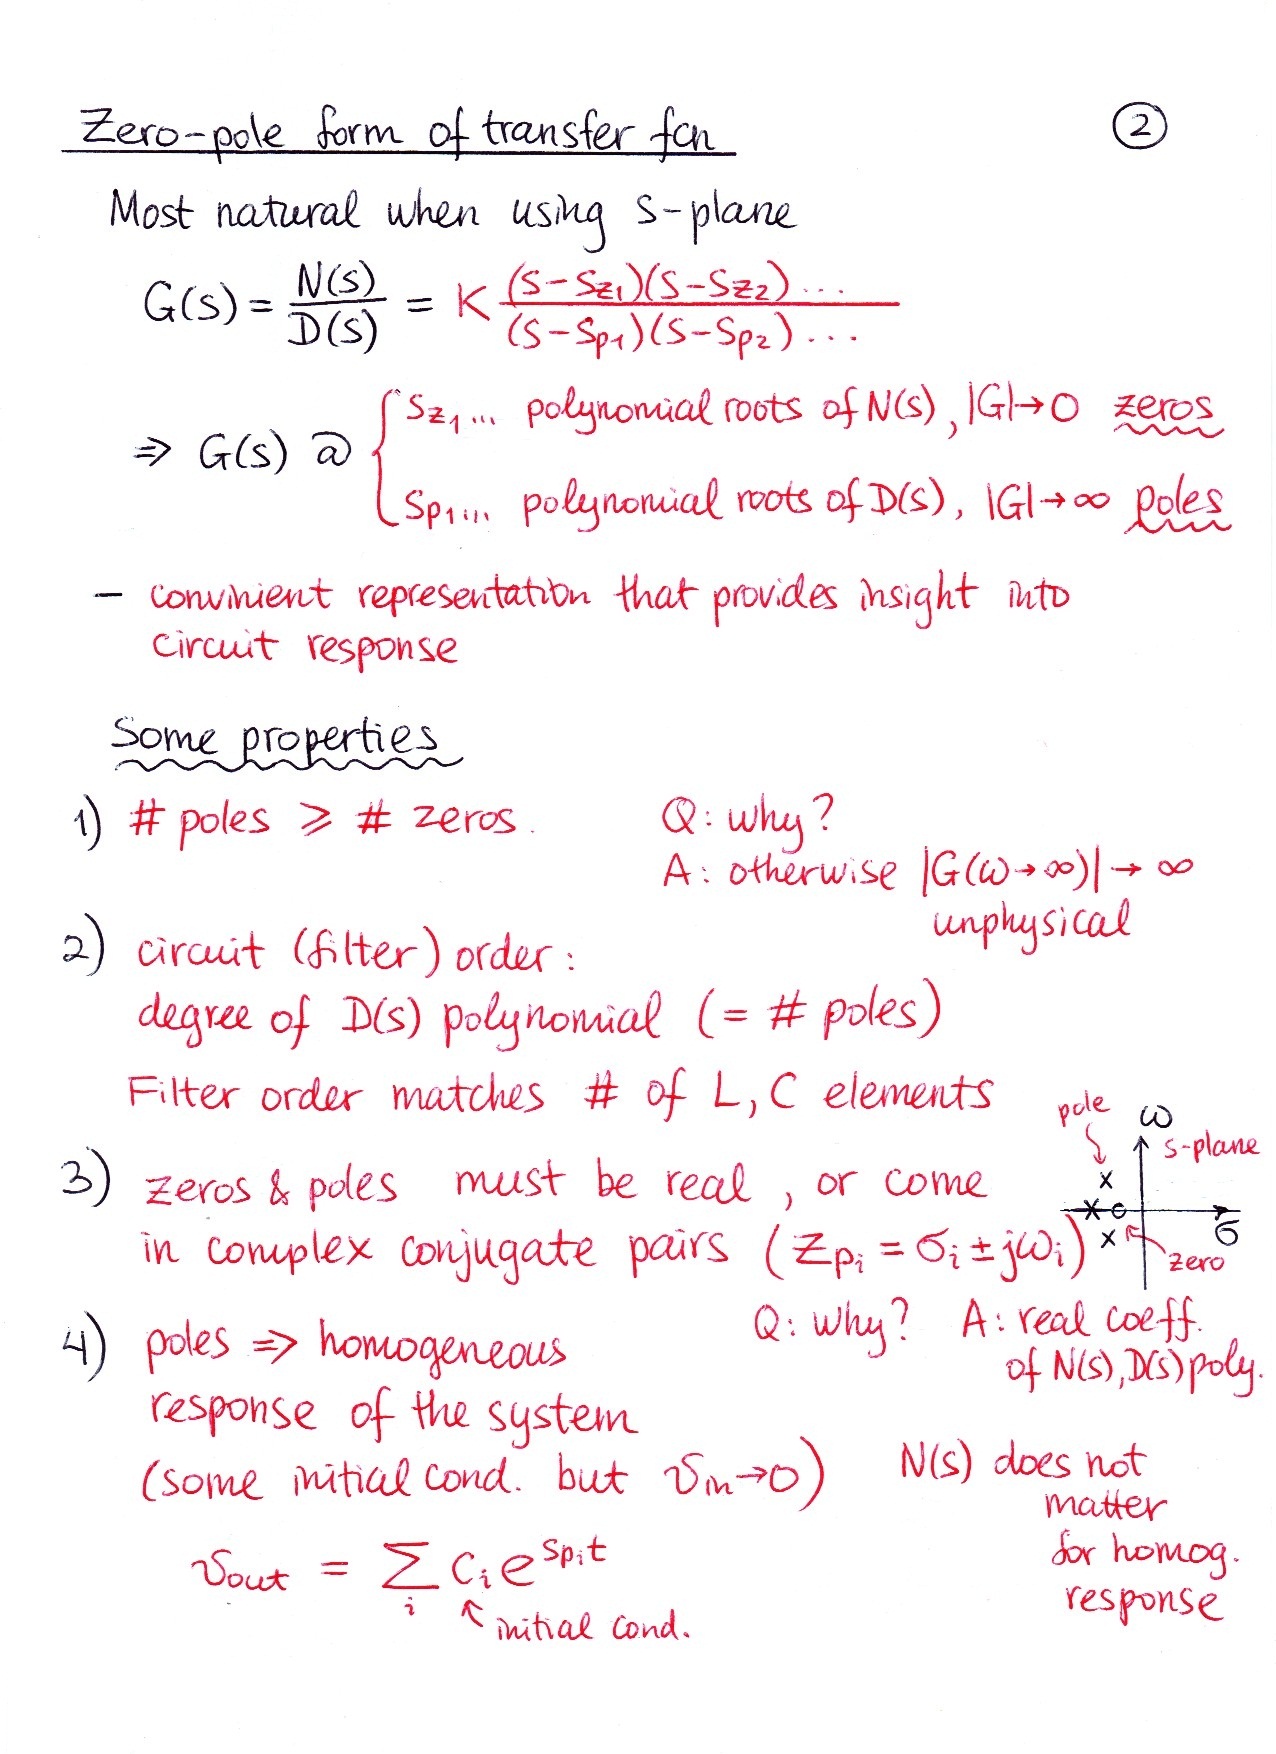 Zero-pole form of transfer fcn
2
Most natural when using s-plane
G(s) = N(s)/D(s) = K (s-sz1)(s-sz2)... / (s-sp1)(s-sp2)...
⇒ G(s) @
sz1... polynomial roots of N(s), |G|→0 zeros
sp1... polynomial roots of D(s), |G|→∞ poles
- convinient representation that provides insight into
circuit response
Some properties
1) # poles ⩾ # zeros.
Q: why?
A: otherwise |G(ω→∞)|→∞
unphysical
2) circuit (filter) order:
degree of D(s) polynomial (= # poles)
Filter order matches # of L, C elements
pole
ω
s-plane
σ
zero
3) zeros & poles must be real, or come
in complex conjugate pairs (zpi = σi ± jωi)
Q: why? A: real coeff.
of N(s), D(s) poly.
4) poles ⇒ homogeneous
response of the system
(some initial cond. but vin→0)
N(s) does not
matter
for homog.
response
vout = Σi ci e^spit
initial cond.